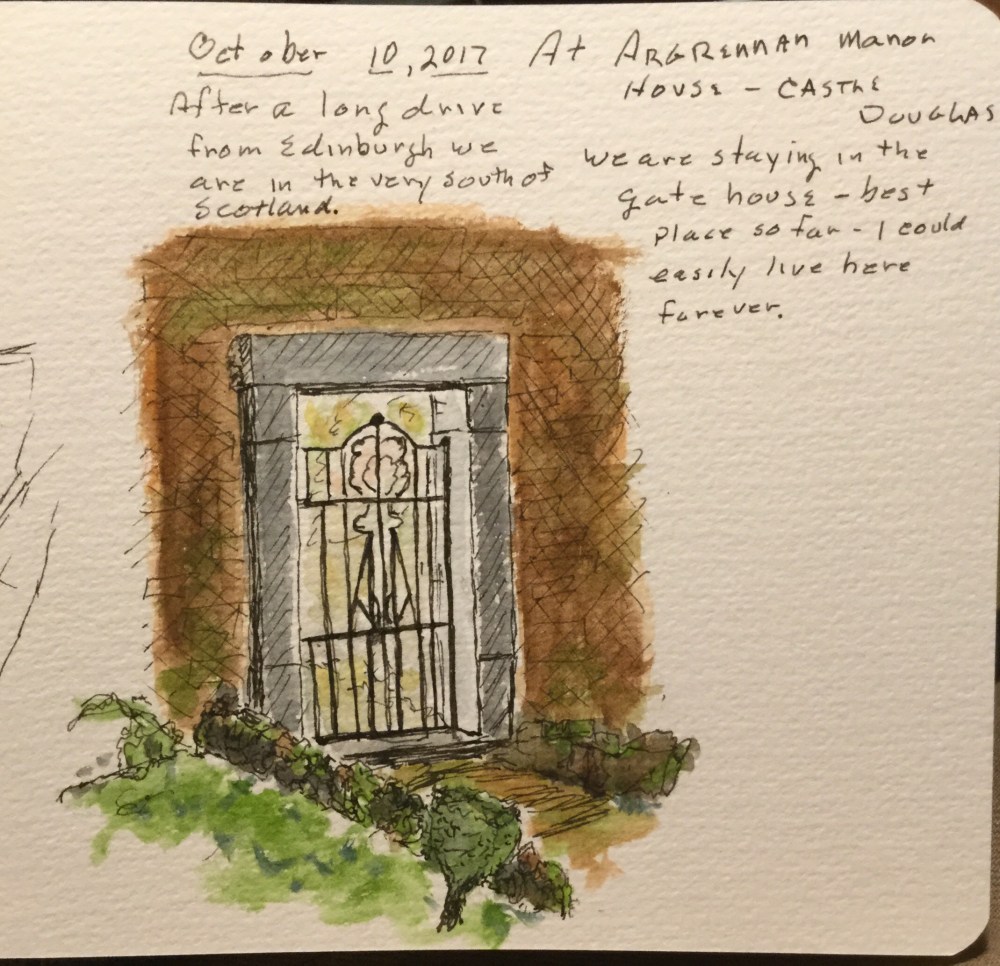 October 10, 2017 At ARGRENNAN Manor
HOUSE - CASTLE
DOUGLAS
After a long drive
from Edinburgh we
are in the very south of
Scotland.
We are staying in the
gate house - best
place so far - I could
easily live here
forever.